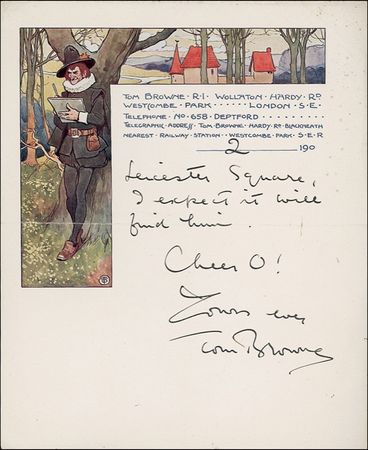 TOM BROWNE · R·I · WOLLATON · HARDY · RD
WESTCOMBE · PARK · · · · · · LONDON · S · E ·
TELEPHONE · NO · 658 · DEPTFORD · · · · · ·
TELEGRAPHIC · ADDRESS · TOM · BROWNE · HARDY · RD · BLACKHEATH
NEAREST · RAILWAY · STATION · · WESTCOMBE · PARK · S · E · R
2 190
Leicester Square,
I expect it will
find him.
Cheer O!
Yours ever
Tom Browne